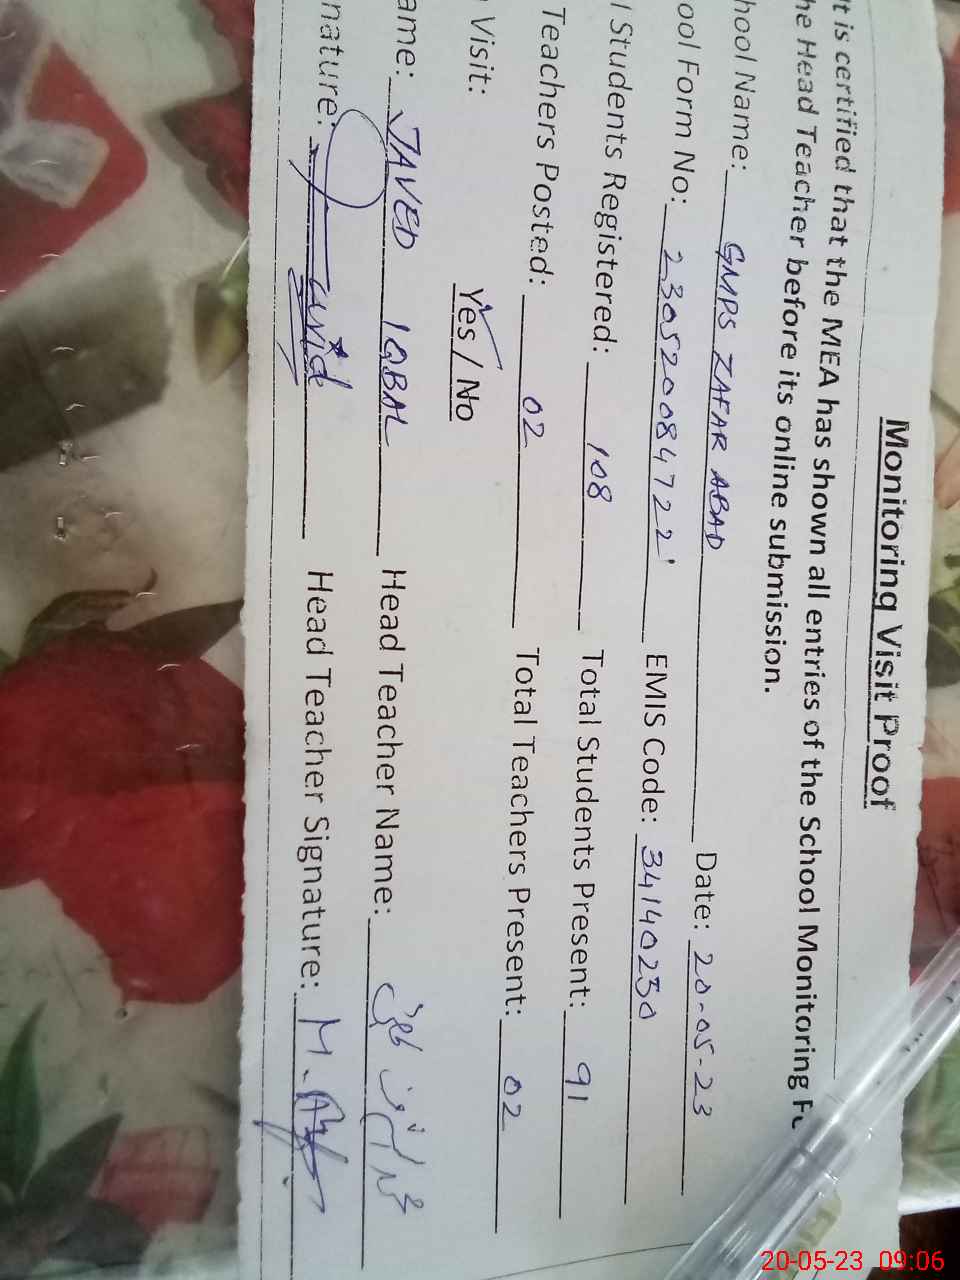 Monitoring Visit Proof
It is certified that the MEA has shown all entries of the School Monitoring Fo
he Head Teacher before its online submission.
hool Name: GMPS ZAFAR ABAD Date: 20-05-23
ool Form No: 23052008472 2 EMIS Code: 34140230
l Students Registered: 108 Total Students Present: 91
Teachers Posted: 02 Total Teachers Present: 02
Visit: Yes / No
ame: JAVED IQBAL Head Teacher Name:
nature: Head Teacher Signature: M.
20-05-23 09:06